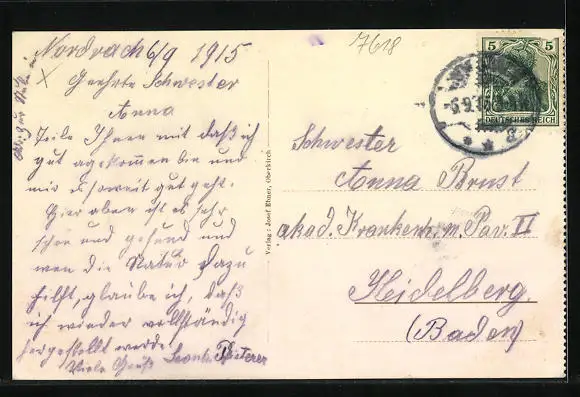 Nordrach 6/9 1915
Geehrte Schwester
Anna
Teile Ihnen mit daß ich
gut agekommen bin und
mir es soweit gut geht.
Hier oben ist es sehr
schön und gesund und
wen die Natur dazu
hilft, glaube ich, daß
ich wieder vollständig
hergestellt werde.
Viele Grüße
7618
5 5
DEUTSCHES REICH
Verlag: Josef Ebner, Oberkirch
Schwester
Anna Brust
akad. Krankenh. m. Pav. II
Heidelberg.
(Baden)